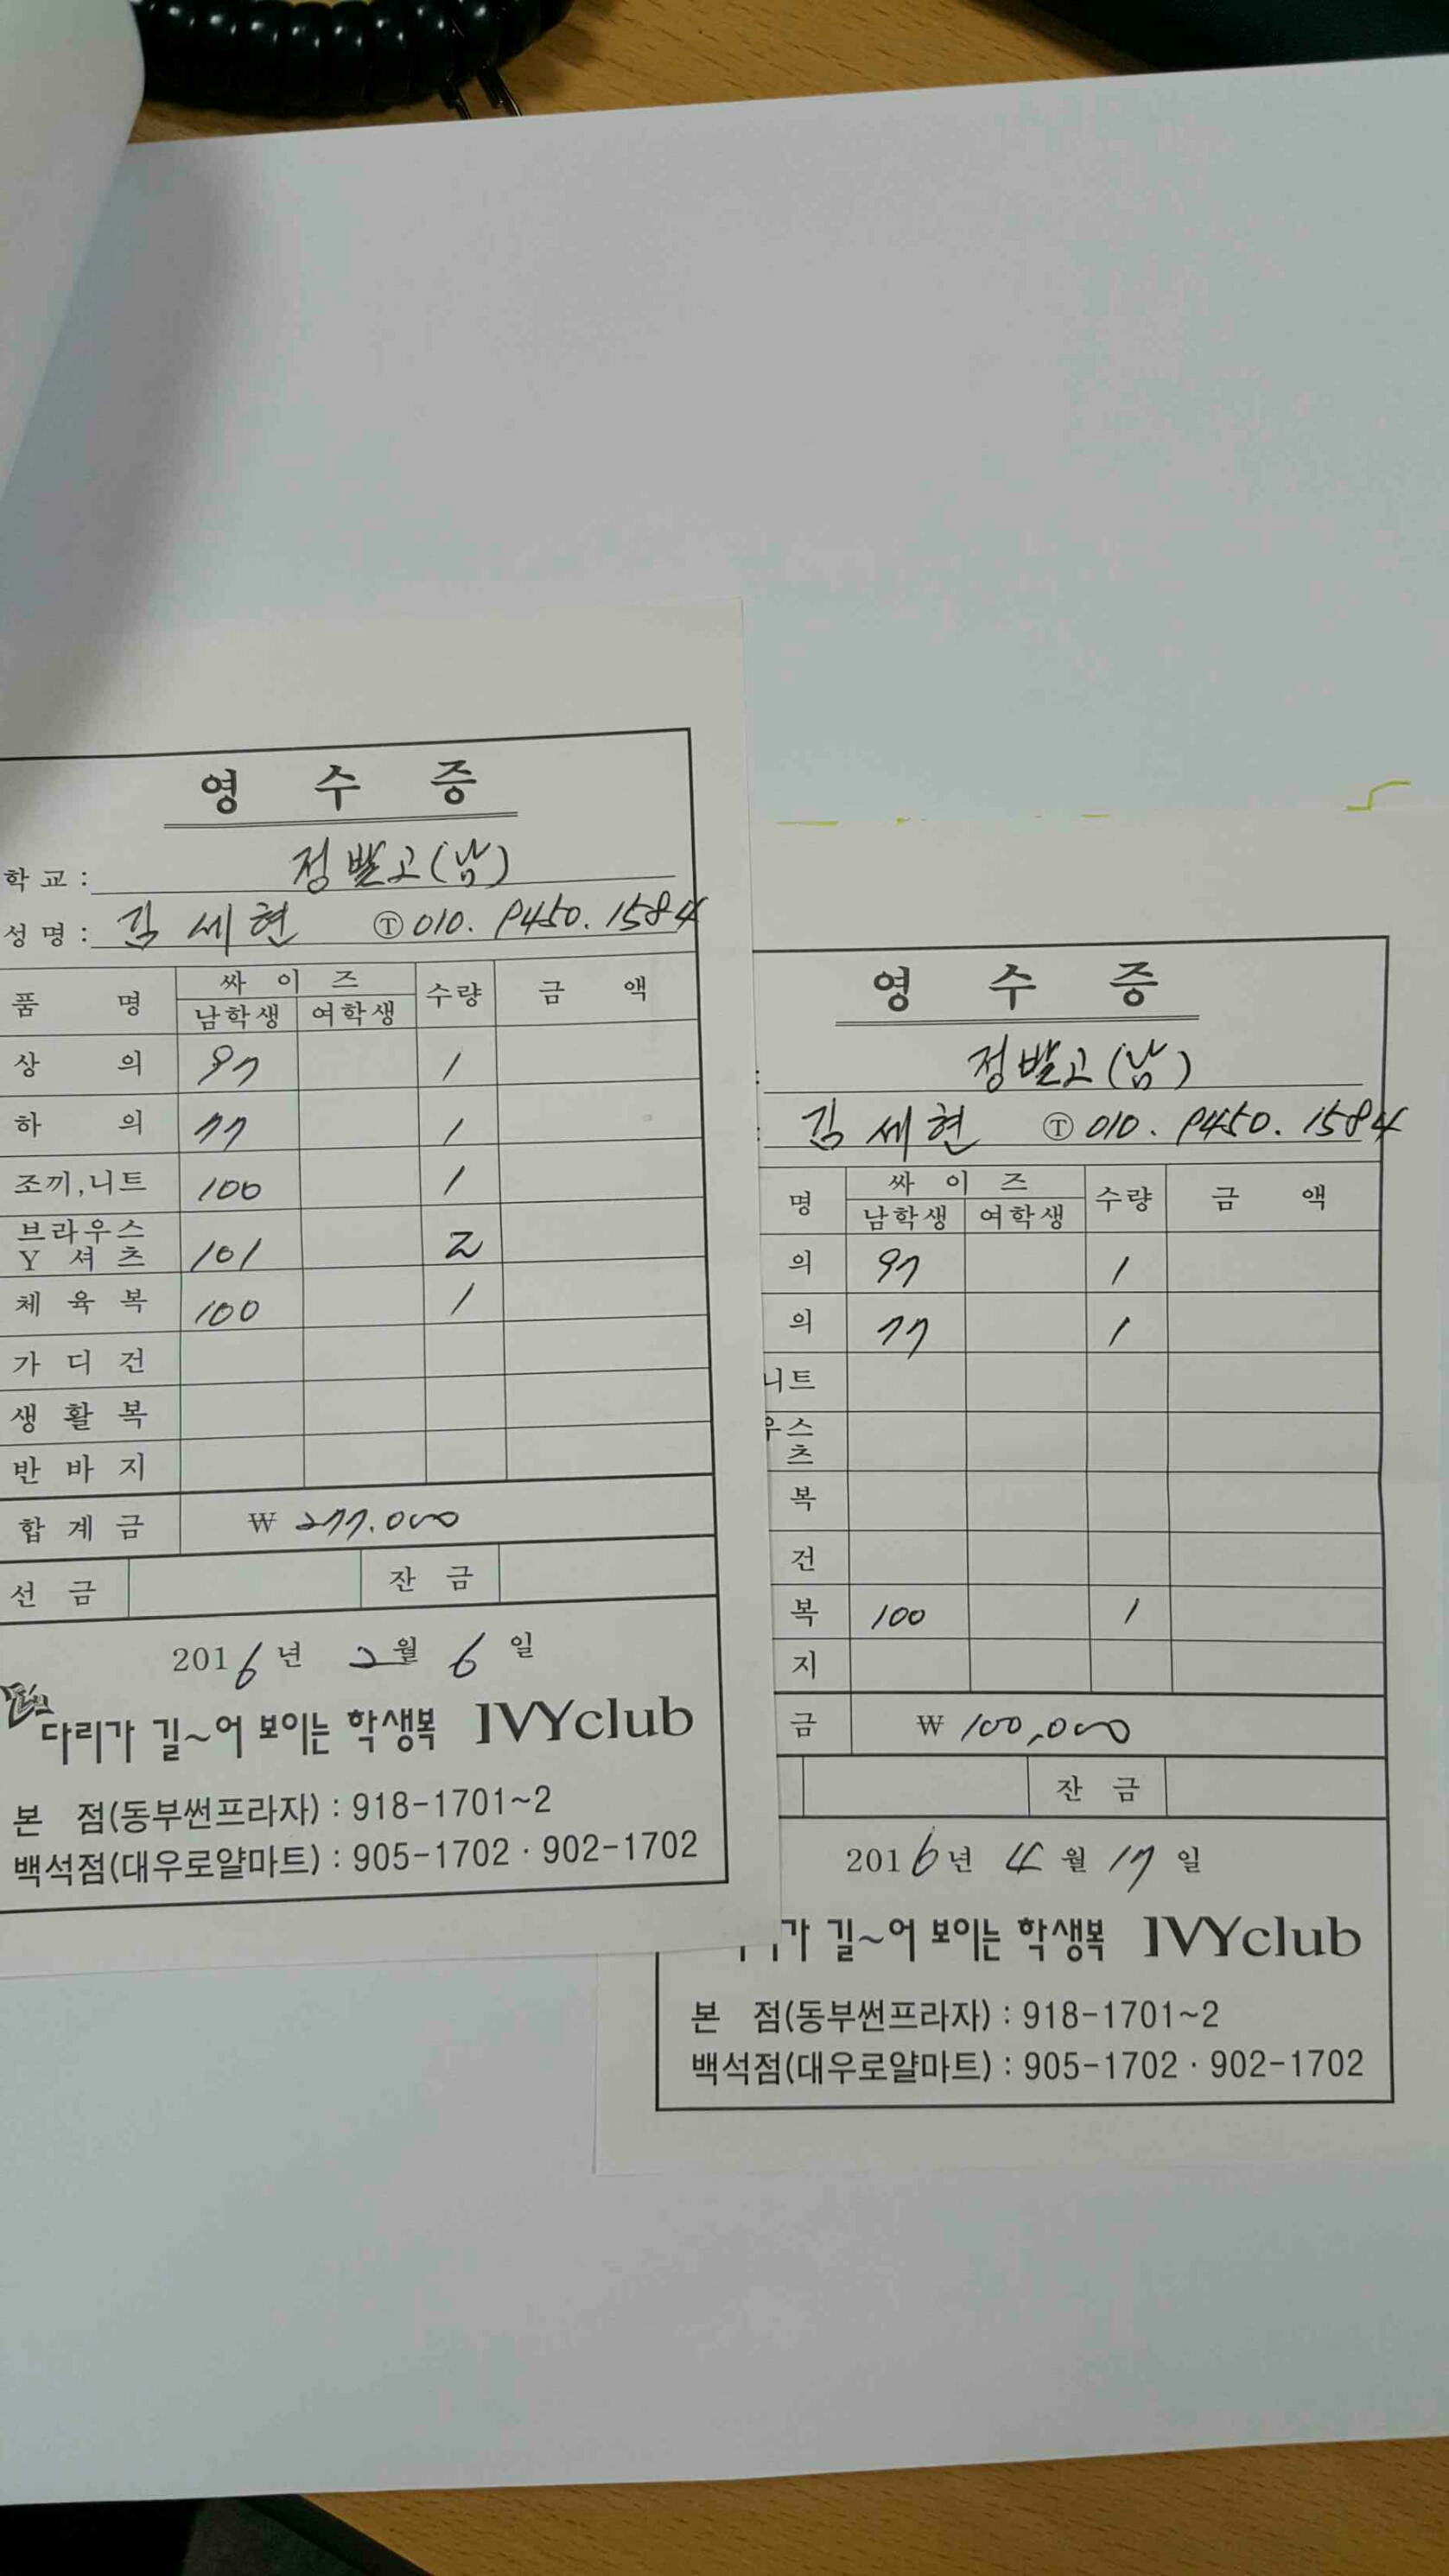 영 수 증
학 교 : 정발고(남)
성 명 : 김세현 Ⓣ 010. 9450. 1584
품 명 싸 이 즈 수량 금 액
남학생 여학생
상 의 97 1
하 의 77 1
조끼,니트 100 1
브라우스
Y 셔 츠 101 2
체 육 복 100 1
가 디 건
생 활 복
반 바 지
합 계 금 ₩ 277,000
선 금 잔 금
2016년 2월 6일
다리가 길~어 보이는 학생복 IVYclub
본 점(동부썬프라자) : 918-1701~2
백석점(대우로얄마트) : 905-1702 · 902-1702
영 수 증
: 정발고(남)
: 김세현 Ⓣ 010. 9450. 1584
명 싸 이 즈 수량 금 액
남학생 여학생
의 97 1
의 77 1
니트
우스
츠
복
건
복 100 1
지
금 ₩ 100,000
잔 금
2016년 4월 17일
가 길~어 보이는 학생복 IVYclub
본 점(동부썬프라자) : 918-1701~2
백석점(대우로얄마트) : 905-1702 · 902-1702